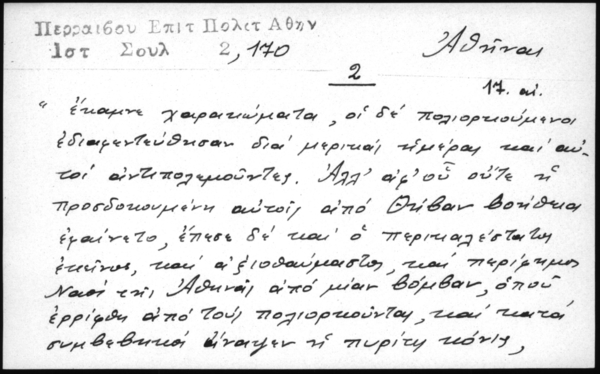 Περραιβου Επιτ Πολετ Αθην
1στ Σουλ 2, 170
Ἀθῆναι
2
17. αἰ.
"ἔκαμνε χαρακώματα, οἱ δέ πολιορκούμενοι
ἐδιαφεντεύθησαν διά μερικάς ἡμέρας καί αὐ-
τοί ἀντιπολεμοῦντες. Ἀλλ' ἀφ' οὗ οὔτε ἡ
προσδοκουμένη αὐτοῖς ἀπό Θήβαν βοήθεια
ἐφαίνετο, ἔπεσε δέ καί ὁ περικαλέστατος
ἐκεῖνος, καί ἀξιοθαύμαστος, καί περίφημος
Ναός τῆς Ἀθηνᾶς ἀπό μίαν βόμβαν, ὁποῦ
ἐρρίφθη ἀπό τούς πολιορκοῦντας, καί κατά
συμβεβηκός ἄναψεν ἡ πυρίτις κόνις,